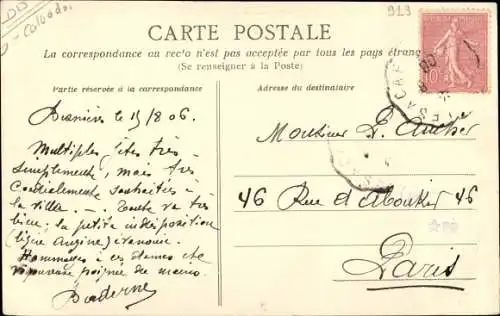 Calvados
919
CARTE POSTALE
La correspondance au recto n'est pas acceptée par tous les pays étran
(Se renseigner à la Poste)
Partie réservée à la correspondance
Adresse du destinataire
10
le 15/8 06.
Multiples fêtes très
simplement, mais très
Cordialement souhaitées à
la ville. — Toute va très
bien; la petite indisposition
(légère Angine) évanouie.
Hommages à ces dames et
vigoureuse poignée de mains
Monsieur
46 Rue d'Aboukir 46
Paris